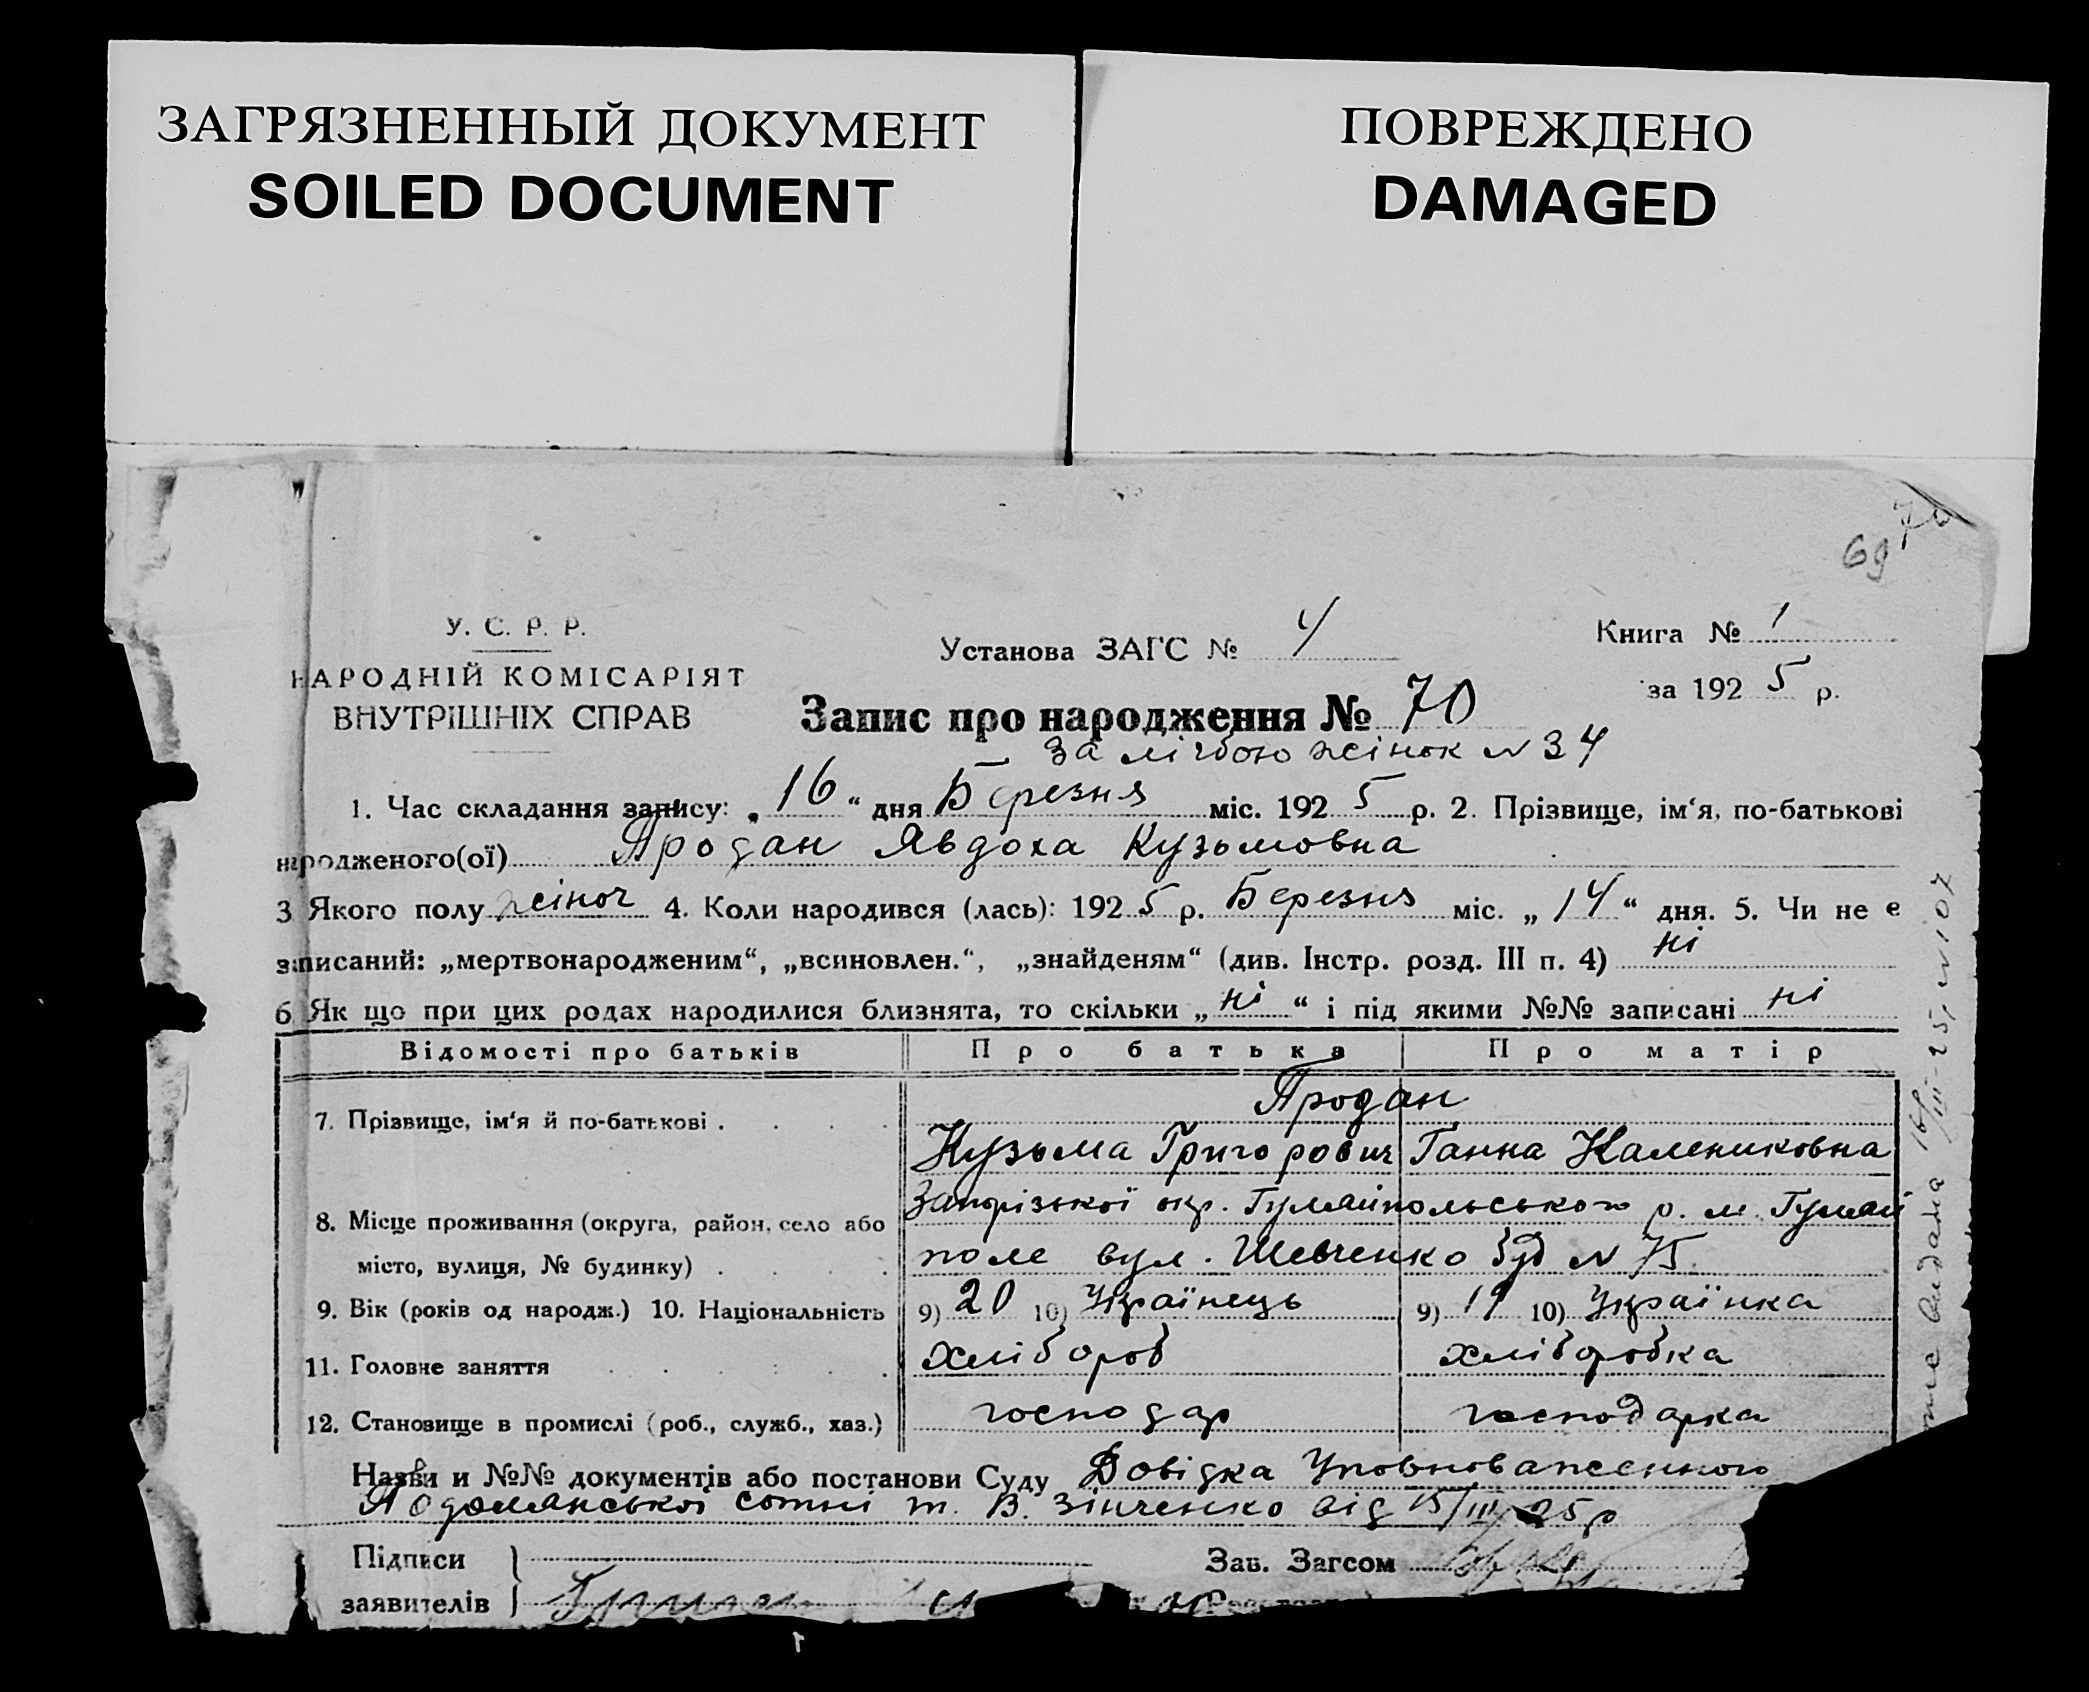 ЗАГРЯЗНЕННЫЙ ДОКУМЕНТ
SOILED DOCUMENT
ПОВРЕЖДЕНО
DAMAGED
70
69
У. С. Р. Р.
НАРОДНІЙ КОМІСАРІЯТ
ВНУТРІШНІХ СПРАВ
Установа ЗАГС № 4
Книга № 1
за 1925 р.
Запис про народження № 70
За лічбою жінок № 34
1. Час складання запису: „16“ дня Березня міс. 1925 р. 2. Прізвище, ім‘я, по-батькові
народженого(ої) Продан Явдоха Кузьмовна
3 Якого полу жіноч 4. Коли народився (лась): 1925 р. Березня міс. „14“ дня. 5. Чи не є
записаний: „мертвонародженим“, „всиновлен.“, „знайденям“ (див. Інстр. розд. III п. 4) ні
6 Як що при цих родах народилися близнята, то скільки „ні“ і під якими №№ записані ні
Відомості про батьків Про батька Про матір
Продан
7. Прізвище, ім‘я й по-батькові . Кузьма Григорович Ганна Калениковна
8. Місце проживання (округа, район, село або Запорізької окр. Гуляйпольського р. м. Гуляй
місто, вулиця, № будинку) . поле вул. Шевченко буд № 75
9. Вік (років од народж.) 10. Національність 9) 20 10) Українець 9) 19 10) Українка
11. Головне заняття хлібороб хліборобка
12. Становище в промислі (роб., служб., хаз.) господар господарка
Назви и №№ документів або постанови Суду Довідка Уповноваженного
Подолянської сотні т. В. Зінченко від 15/III 25 р
Підписи
заявителів
Зав. Загсом
видана 16/III-25, № 107